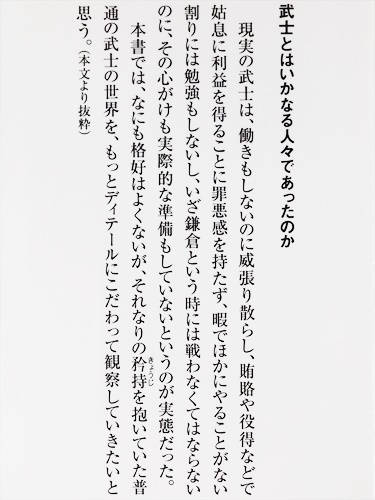 武士とはいかなる人々であったのか
現実の武士は、働きもしないのに威張り散らし、賄賂や役得などで
姑息に利益を得ることに罪悪感を持たず、暇でほかにやることがない
割りには勉強もしないし、いざ鎌倉という時には戦わなくてはならない
のに、その心がけも実際的な準備もしていないというのが実態だった。
本書では、なにも格好はよくないが、それなりの矜持きょうじを抱いていた普
通の武士の世界を、もっとディテールにこだわって観察していきたいと
思う。（本文より抜粋）